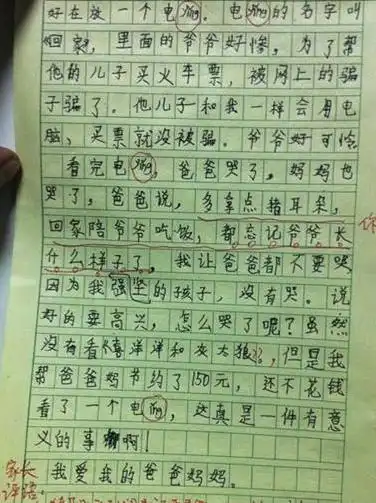 好在放一个电ying。电ying的名字叫
《回家》，里面的爷爷好惨，为了帮
他的儿子买火车票，被网上的骗
子骗了。他儿子和我一样会用电
脑，买票就没被骗。爷爷好可怜
看完电ying，爸爸哭了，妈妈也
哭了，爸爸说，多拿点猪耳朵，
回家陪爷爷吃饭，都忘记爷爷长
什么样子了。我让爸爸都不要哭
因为我强坚的孩子，没有哭。说
好的要高兴，怎么哭了呢？虽然
没有看《喜洋洋和灰太狼》，但是我
帮爸爸妈节约了150元，还不花钱
看了一个电ying，这真是一件有意
义的事啊！
我爱我的爸爸妈妈。
家长
评语